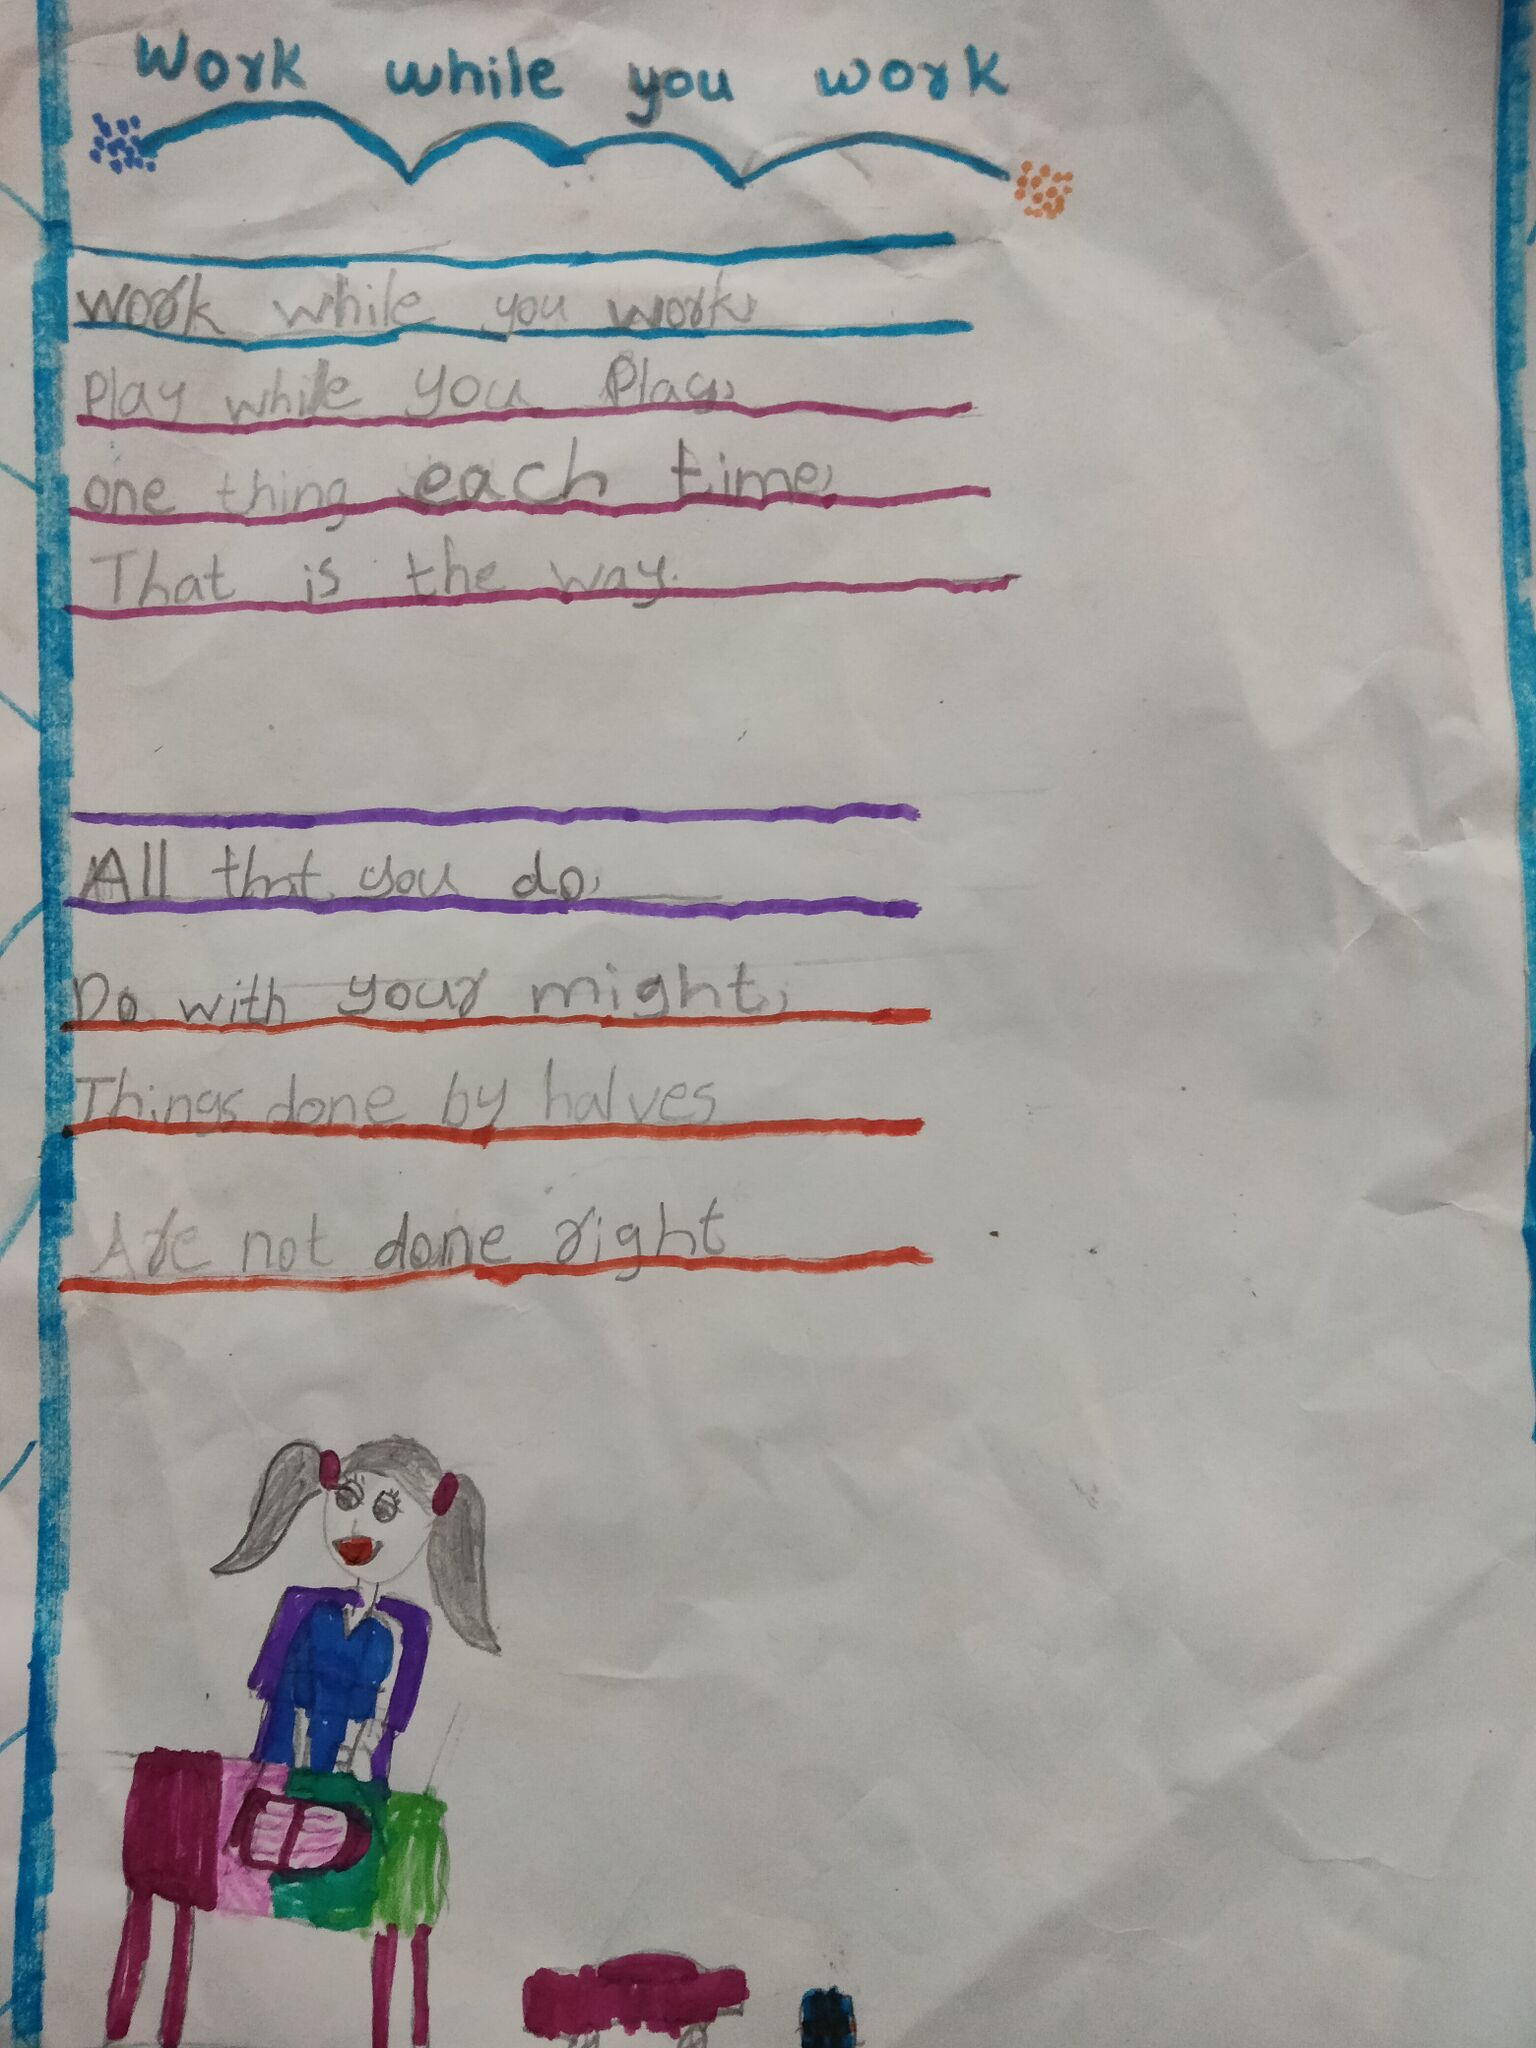 Work while you work
Work while you work,
Play while you Play,
one thing each time,
That is the way.
All that you do,
Do with your might,
Things done by halves
Are not done right